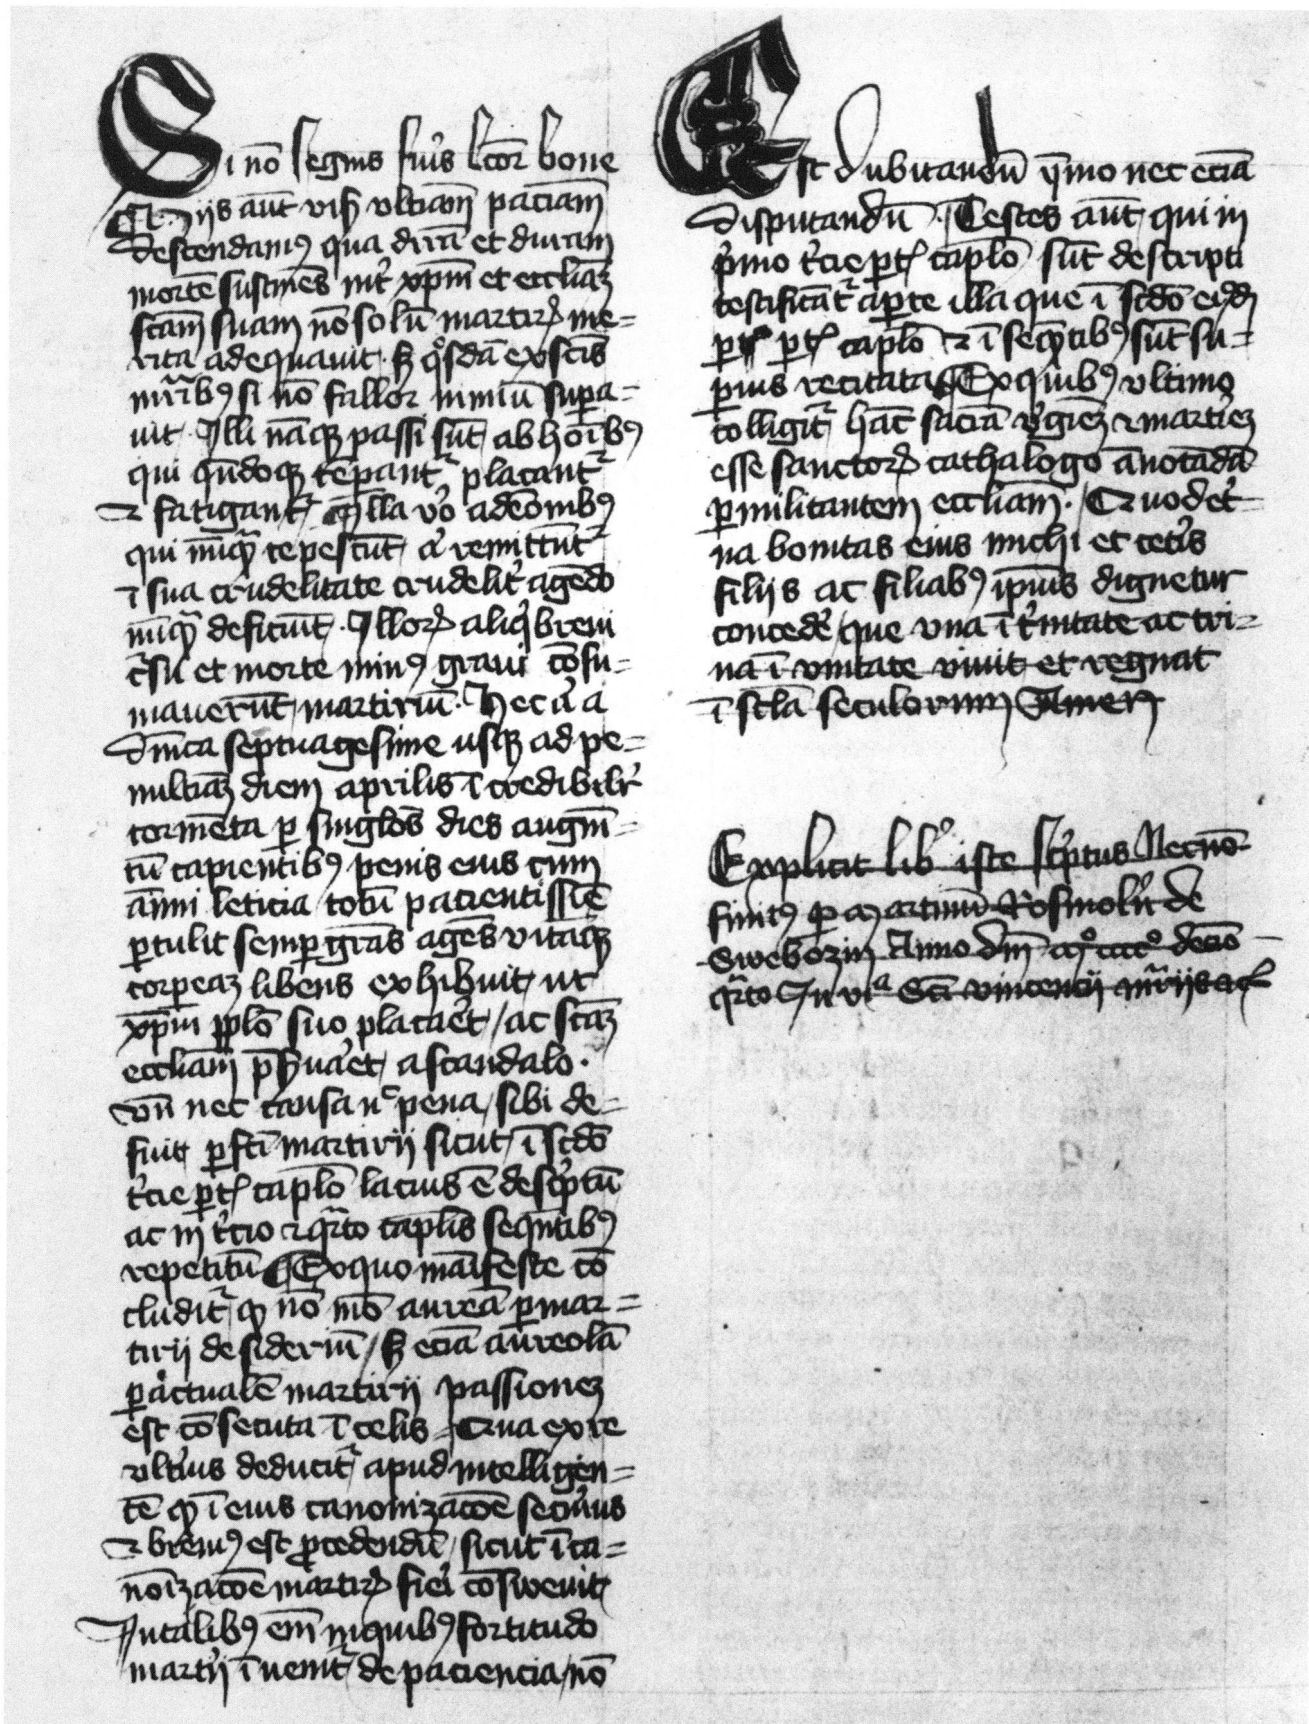 Si nō segnis fuīs lcōr bone
hijs aūt visꝭ vltīam paciam
descendamꝰ qua dirā et duram
mortē sustinēs int̄ xp̄m et eccliaꝫ
scām suam nō solū martirꝝ me=
rita adequauit · sꝫ qͦsdā ex sc̄is
mr̄ibꝰ si nō fallor nimiū supa=
uit · Illi nāqꝫ passi sūt ab hoībꝰ
qui qn̄doqꝫ tēpantᷣ placantᷣ
⁊ fatigantᷣ illa v̓o a demōibꝰ
qui nūqꝫ tepescūt / remittūt
ī sua crudelitate crudelit̓ agēdo
nūqꝫ deficiūt · Illorꝝ aliq̓ breui
c̓su et morte minꝰ graui cōsu=
mauerūt martiriū · Hec v̓ a
dn̄ica septuagesime usqꝫ ad pe=
nultīaꝫ diem aprilis īcredibilr̓
tormēta ꝑ singlōs dies augm̄=
tū capientibꝰ penis eius cum
aīmi leticia totū pacientissīe
ꝑtulit semꝑ grās agēs vitāqꝫ
corpeaꝫ libens exhibuit ut
xp̄m pplō suo placaēt / ac scāꝫ
eccliam p̄ẜuaēt a scandalo ·
vn̄ nec causa nͨ pena / sibi de=
fuit ꝑfcī martirij sicut ī scdō
t̓cie ꝑtꝭ capłō lacius ē desc̓ptū
ac in t̓cio ⁊ qͣrto capłīs sequētibꝰ
repetitū ¶ Ex quo māifeste cō
cluditᷣ ꝙ nō mō aureā ꝑ mar=
tirij desideriū / sꝫ eciā aureolā
ꝑ actualē martirij passioneꝫ
est cōsecuta ī celis Qua ex re
vlt̓ius deducitᷣ apud intelligen=
tē ꝙ ī eius canonizacōe secur̓ius
⁊ breuiꝰ est ꝓcedendū / sicut ī ca=
noīzacōe martirꝝ fieī cōsweuit
In talibꝰ em̄ in quibꝰ fortitudo
martij īuenitᷣ de paciencia / nō
Est dubitandū qͥmo nec eciā
disputandū · ¶ Testes aūt qui in
p̓mo t̓cie ꝑtꝭ capłō sūt descripti
testificātᷣ aꝑte illa que ī scdō eiꝰdꝫ
ꝑtꝭ capłō ⁊ ī sequētibꝰ sūt su=
ꝑius recitata ¶ Ex quibꝰ vltimo
colligitᷣ hāc sacrā v̓gīeꝫ ⁊ martīeꝫ
esse sanctorꝝ cathalogo ānotādā
ꝑ militantem eccliam · Quod et̓=
na bonitas eius michi et cet̓is
filijs ac filiabꝰ ip̄ius dignetur
concedē / que vna ī t̓nitate ac tri=
na ī vnitate viuit et regnat
ī scłā seculorum Amen
Explicit libͦ iste sc̓ptus Necnō
finitꝰ ꝑ Martinū Rosmolr̓ de
Swebozin Anno dn̄i Mͦ ccccͦ decīo
qͣrto In viͣ Scī vincencij mr̄ijs acꝭ